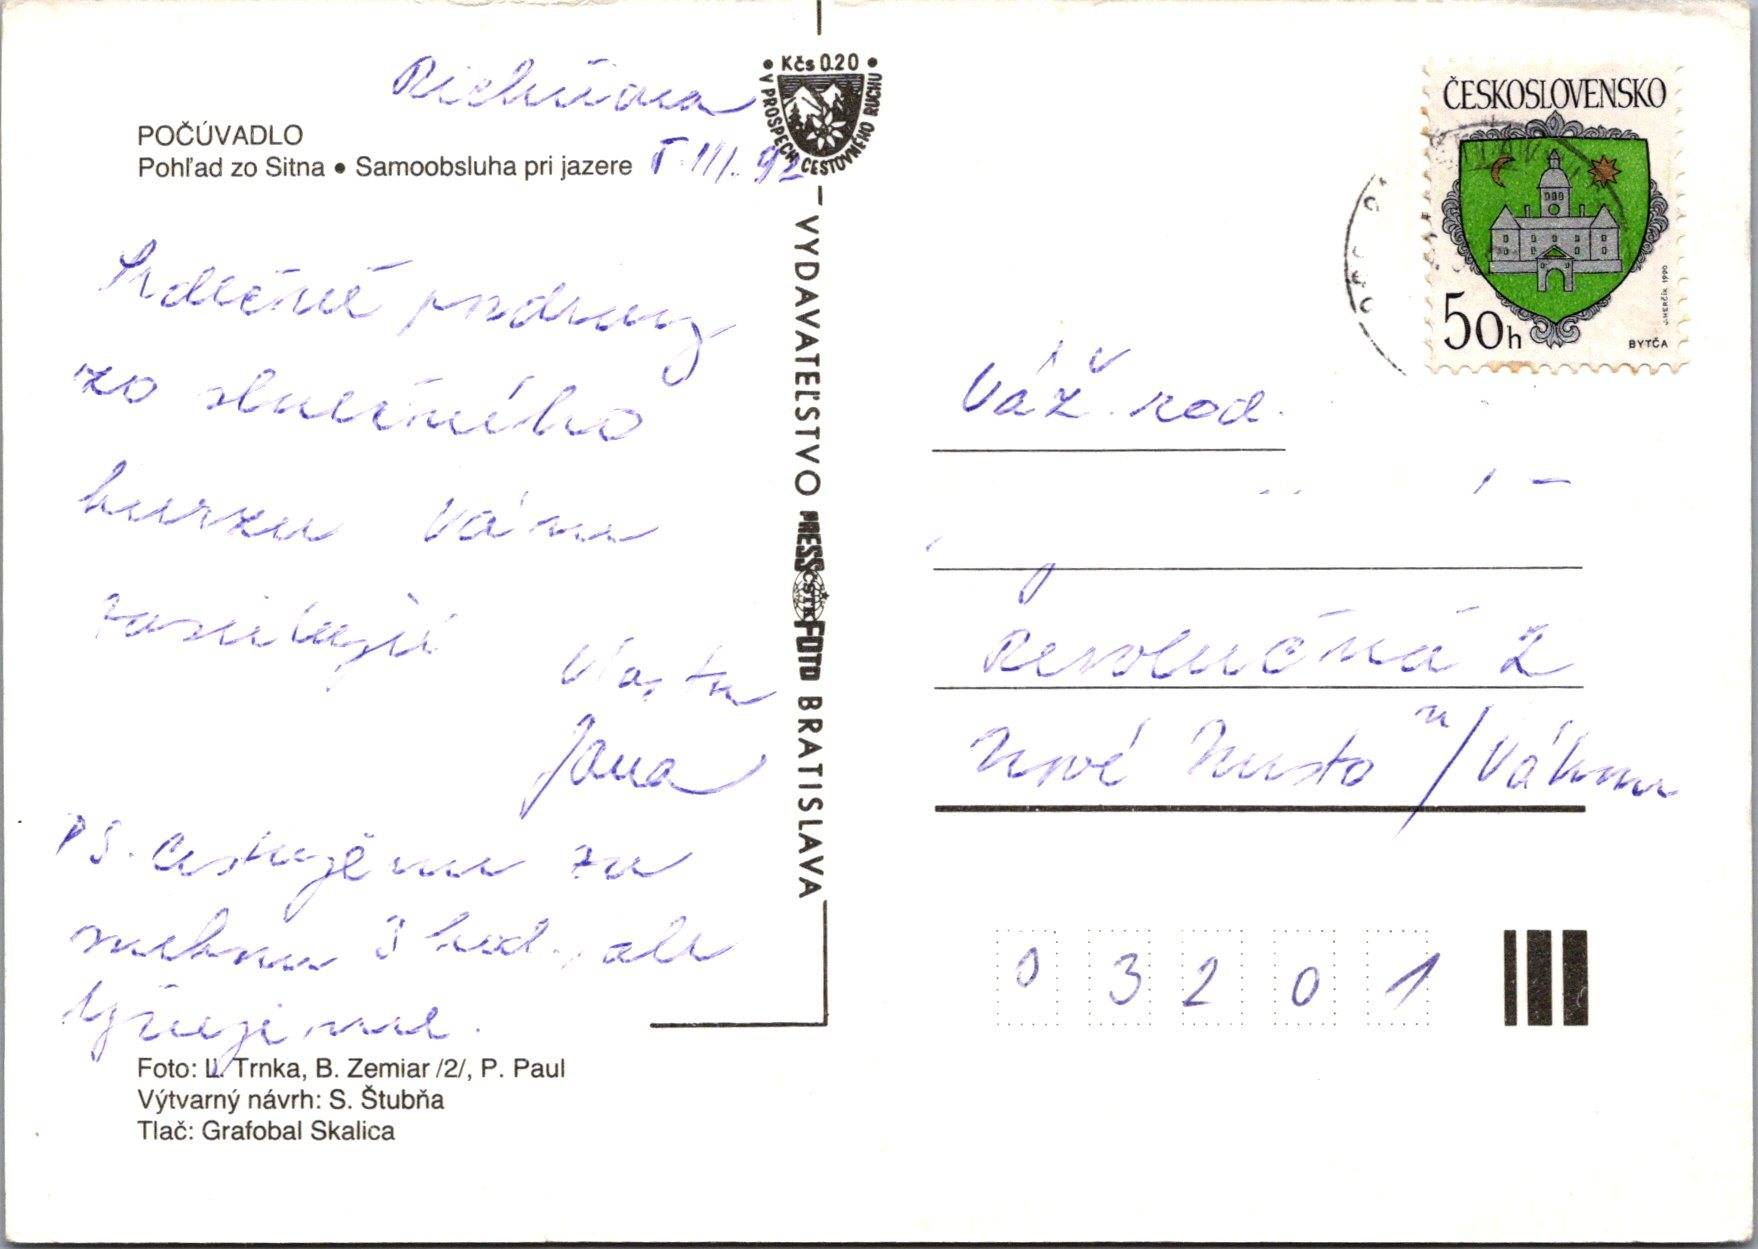 Richňava
POČÚVADLO
Pohľad zo Sitna • Samoobsluha pri jazere
III. 92
Srdečné pozdravy
zo slnečného
kurzu Vám
zasielajú
Vlasta
Jana
PS. Cestujeme za
3 hod., ale
Foto: Ľ. Trnka, B. Zemiar /2/, P. Paul
Výtvarný návrh: S. Štubňa
Tlač: Grafobal Skalica
• Kčs 0.20 •
V PROSPECH CESTOVNÉHO RUCHU
VYDAVATEĽSTVO PRESSFOTO BRATISLAVA
ČSTK
ČESKOSLOVENSKO
50h
BYTČA
J. HERČÍK 1990
Váž. rod.
Revolučná 2
Nové Mesto n/Váhom
03201